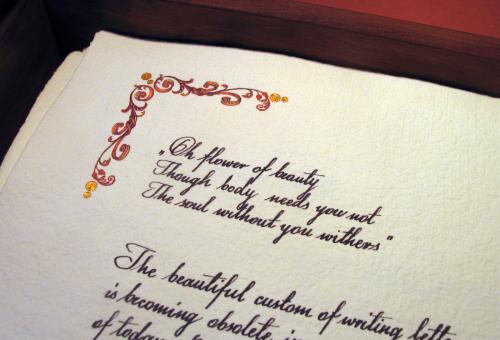 „Oh flower of beauty
Though body needs you not
The soul without you withers"
The beautiful custom of writing lette
is becoming obsolete in
of today